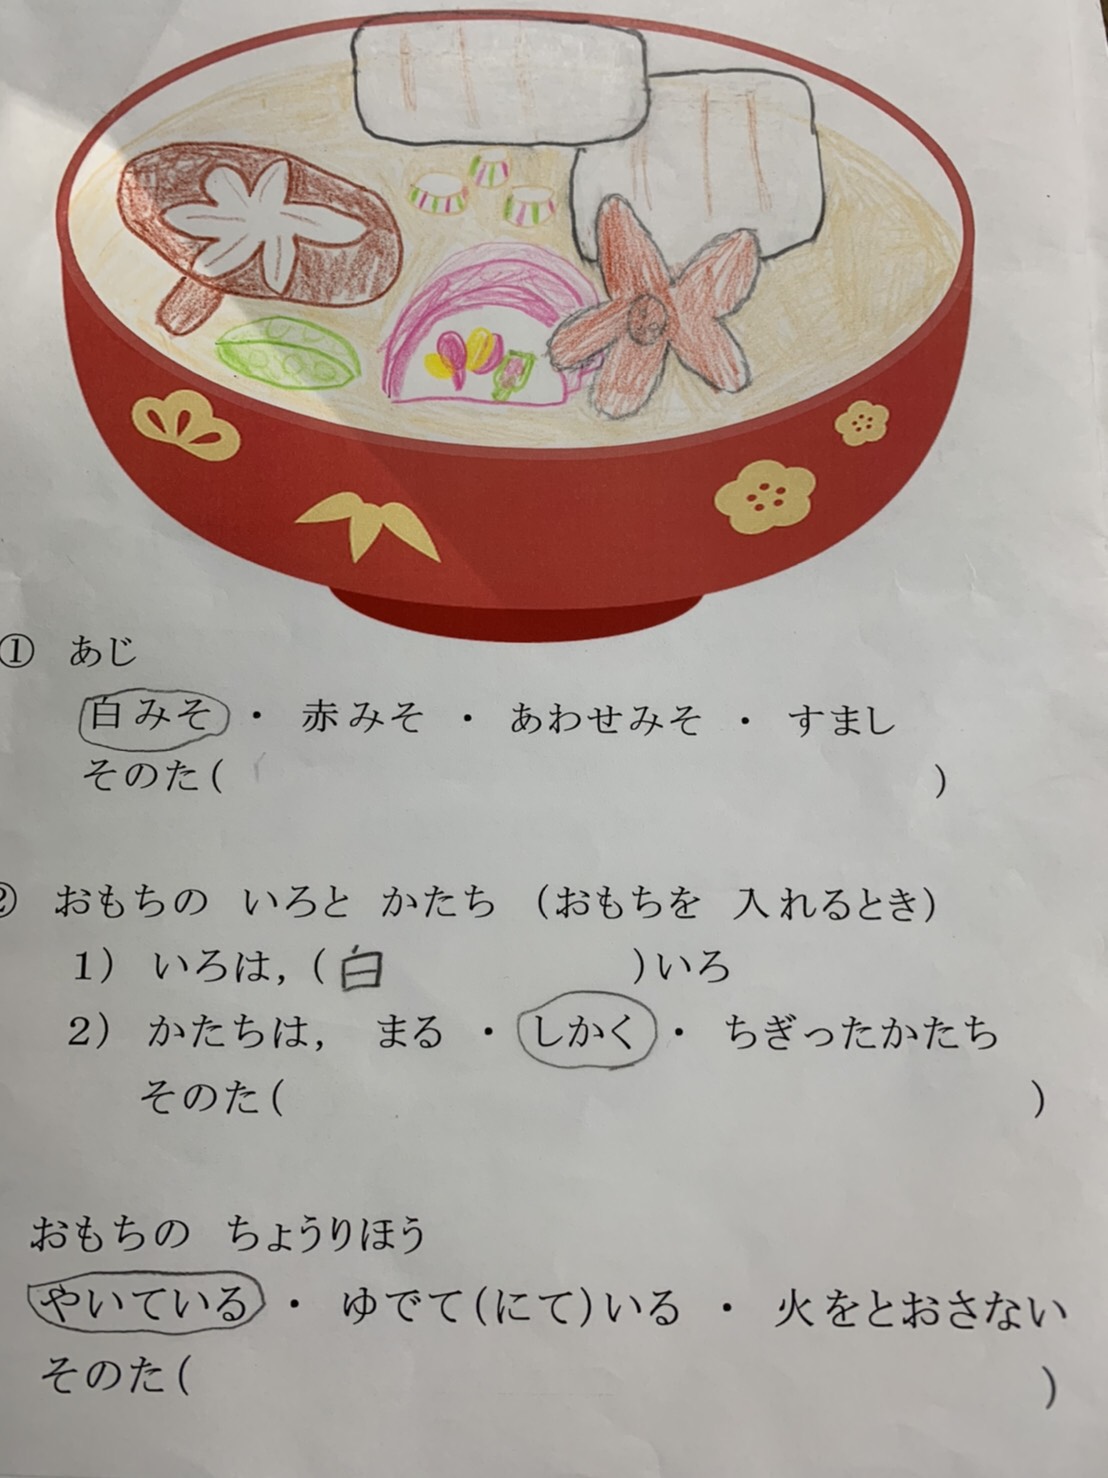 ① あじ
白みそ ・ 赤みそ ・ あわせみそ ・ すまし
そのた( )
② おもちの いろと かたち (おもちを 入れるとき)
1) いろは, (白 )いろ
2) かたちは, まる ・ しかく ・ ちぎったかたち
そのた( )
おもちの ちょうりほう
やいている ・ ゆでて(にて)いる ・ 火をとおさない
そのた( )